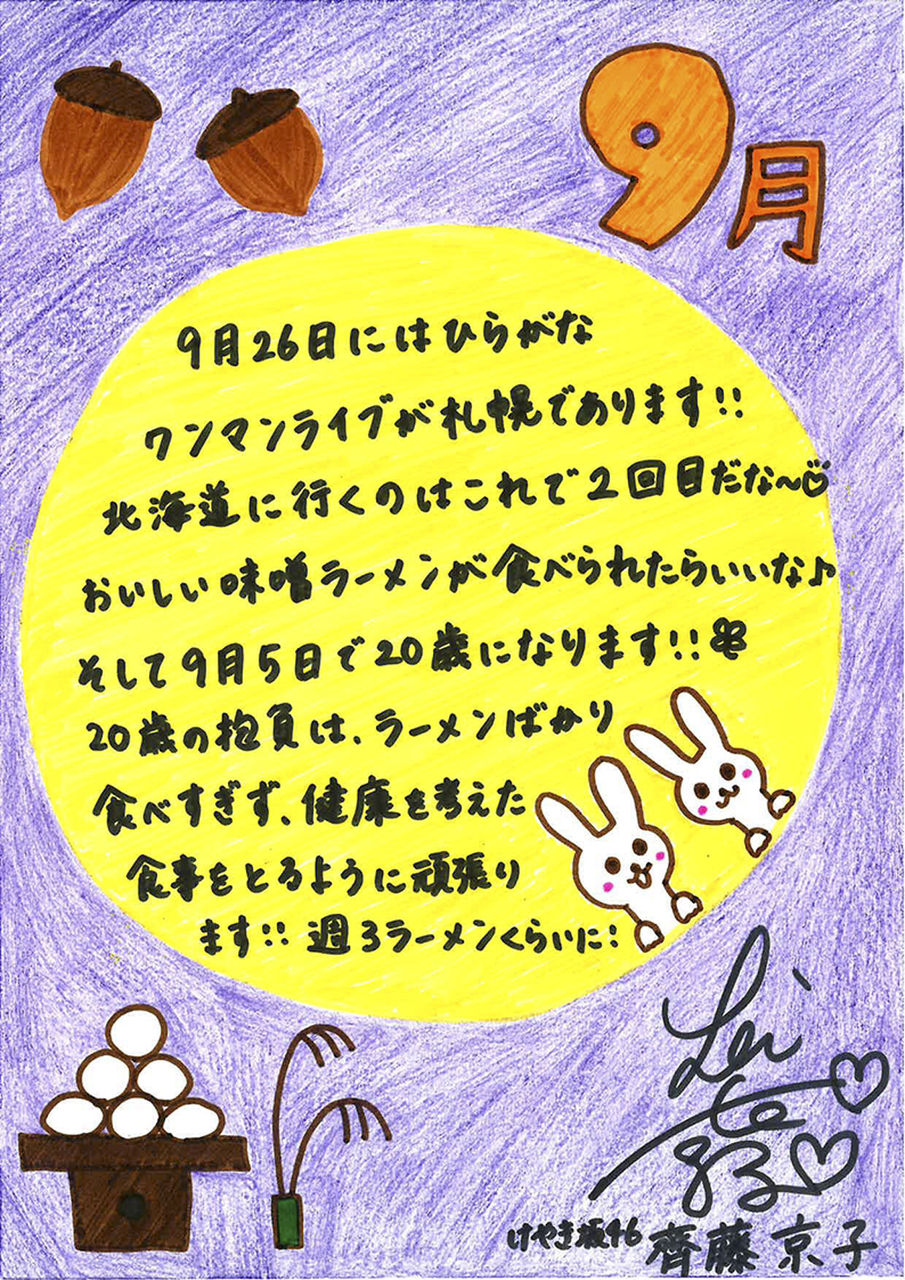 9月
9月26日にはひらがな
ワンマンライブが札幌であります!!
北海道に行くのはこれで2回目だな〜♡
おいしい味噌ラーメンが食べられたらいいな♪
そして9月5日で20歳になります!!
20歳の抱負は、ラーメンばかり
食べすぎず、健康を考えた
食事をとるように頑張り
ます!! 週3ラーメンくらいに!
けやき坂46 齊藤京子